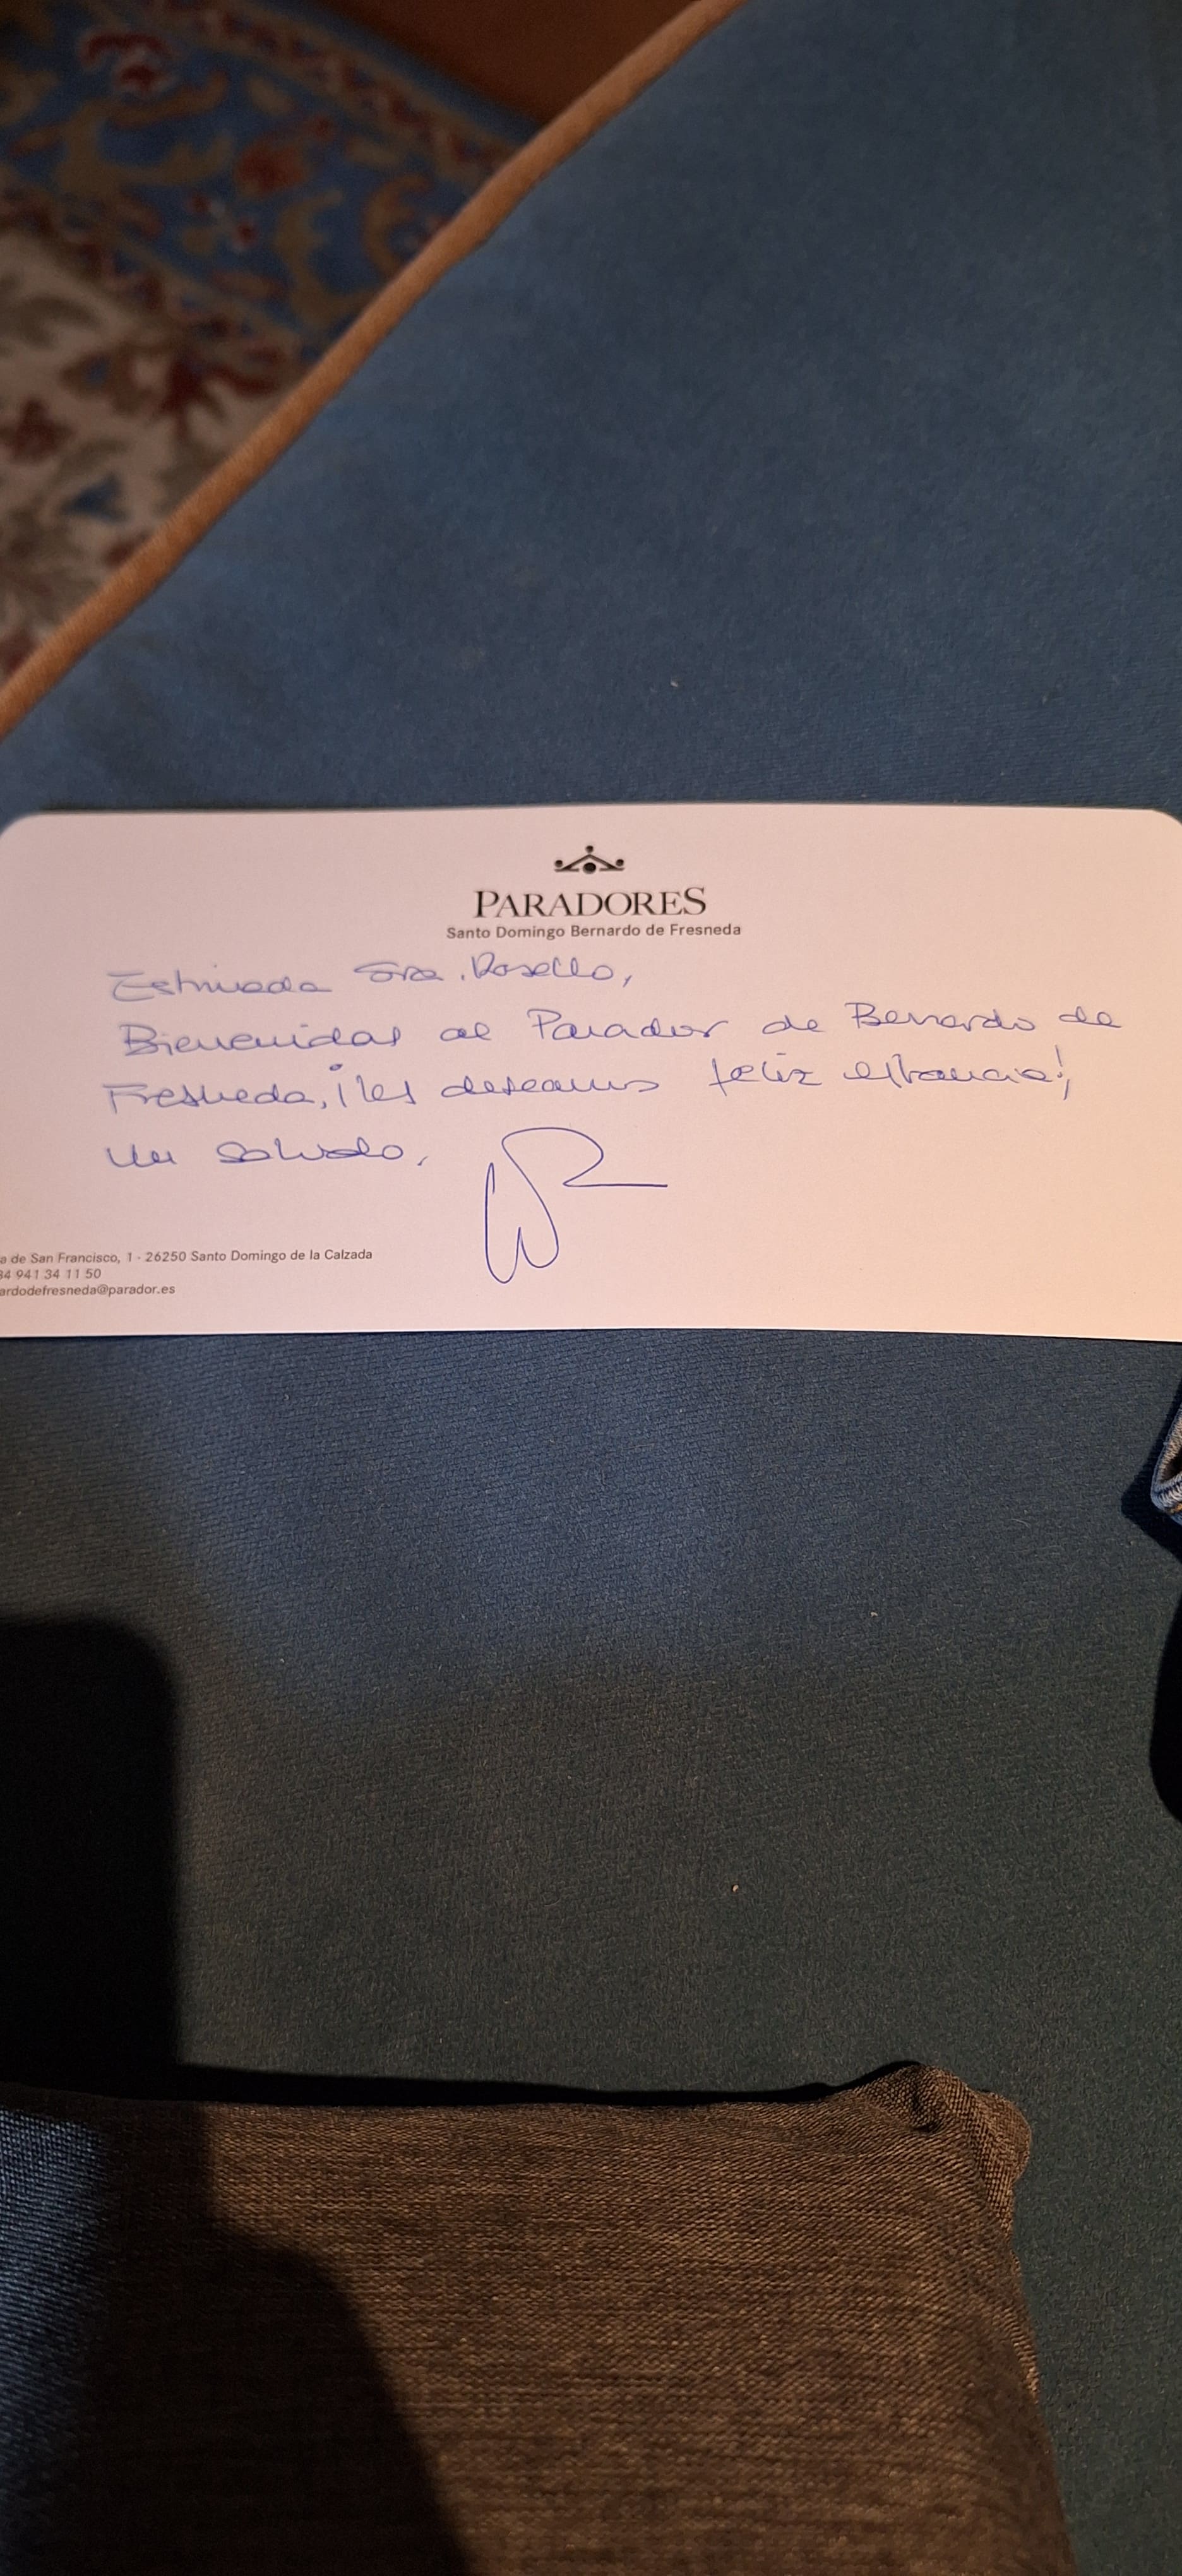 PARADORES
Santo Domingo Bernardo de Fresneda
Estimada Sra. Rosello,
Bienvenidas al Parador de Bernardo de
Fresneda, ¡les deseamos feliz estancia!,
Un saludo,
a de San Francisco, 1 - 26250 Santo Domingo de la Calzada
34 941 34 11 50
ardodefresneda@parador.es